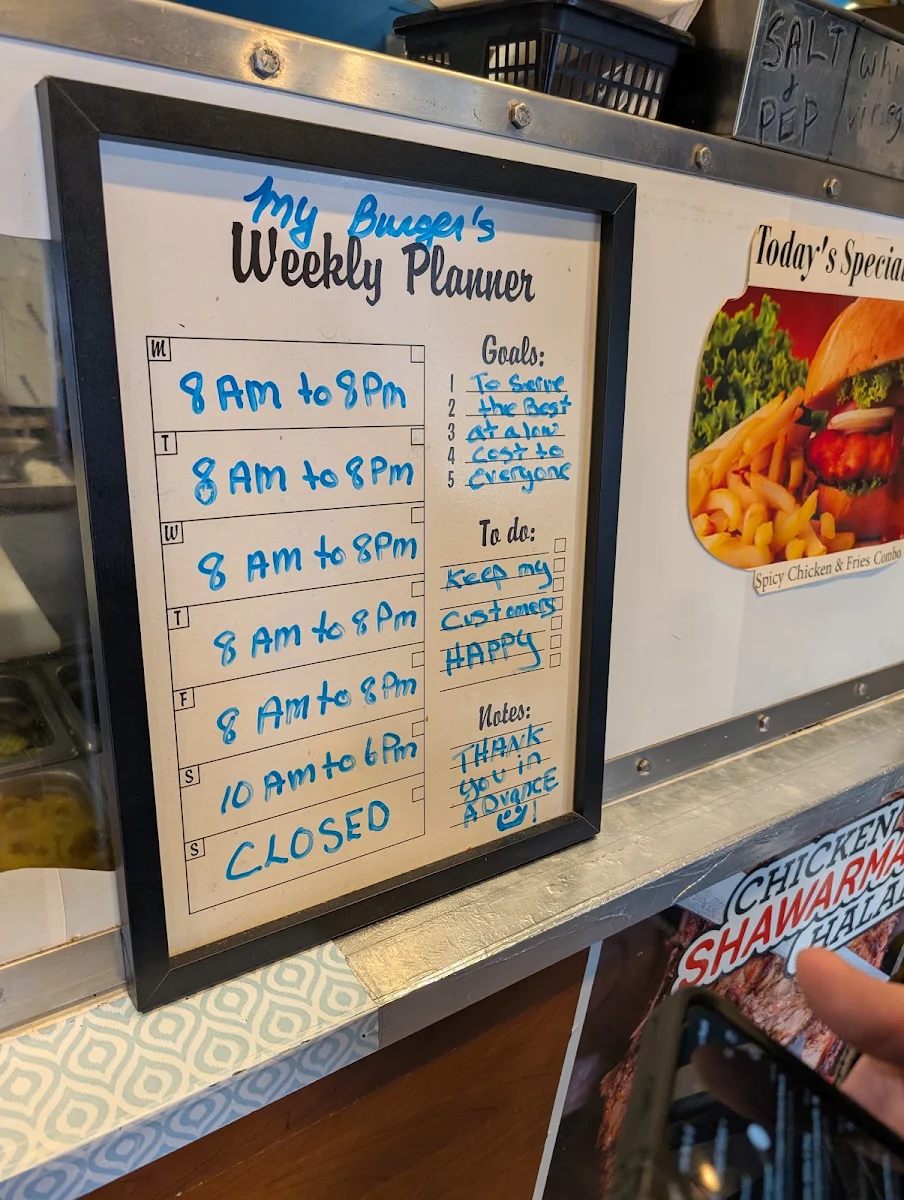 SALT
&
PEP
My Burger's
Weekly Planner
M
8 AM to 8PM
T
8 AM to 8PM
W
8 AM to 8PM
T
8 AM to 8PM
F
8 AM to 8PM
S
10 AM to 6PM
S
CLOSED
Goals:
1 To Serve
2 the Best
3 at a low
4 cost to
5 everyone
To do:
Keep my
Customers
HAPPY
Notes:
THANK
you in
ADvance
!
Today's Special
Spicy Chicken & Fries Combo
CHICKEN
SHAWARMA
HALAL